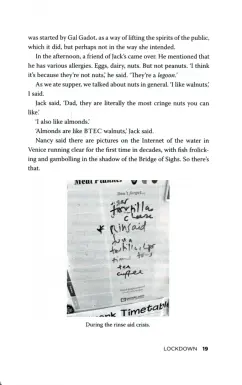 was started by Gal Gadot, as a way of lifting the spirits of the public,
which it did, but perhaps not in the way she intended.
In the afternoon, a friend of Jack's came over. He mentioned that
he has various allergies. Eggs, dairy, nuts. But not peanuts. 'I think
it's because they're not nuts,' he said. 'They're a legoon.'
As we ate supper, we talked about nuts in general. 'I like walnuts,'
I said.
Jack said, 'Dad, they are literally the most cringe nuts you can
like.'
'I also like almonds.'
'Almonds are like BTEC walnuts,' Jack said.
Nancy said there are pictures on the Internet of the water in
Venice running clear for the first time in decades, with fish frolick-
ing and gambolling in the shadow of the Bridge of Sighs. So there's
that.
Meal Planner
Don't forget...
tortilla
* Rinsaid
tea
coffee
Timetable
During the rinse aid crisis.
LOCKDOWN 19